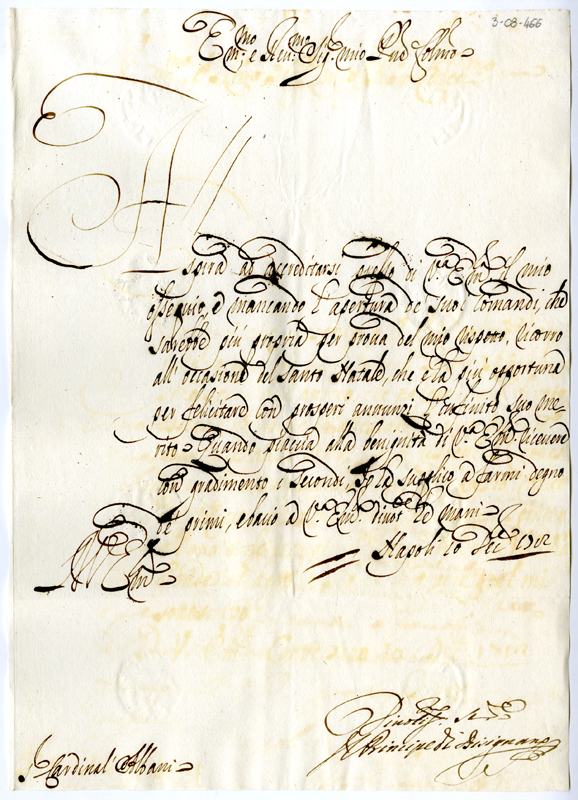 3-08-466
Em.mo e Rev.mo Sig.r mio P.ne Col.mo
Aspira ad accreditarsi quello di V.a Em.a il mio
ossequio, e mancando l'apertura de' suoi comandi, che
sarebbe più propria per prova del mio rispetto, ricorro
all'occasione del Santo Natale, che è la più opportuna
per felicitare con prosperi annunzi l'infinito suo me-
rito. Quando piaccia alla benignità di V.a Em.a ricevere
con gradimento i secondi, Io la supplico a farmi degno
de primi, e bacio a V.a Em.a divot.te le mani
Napoli 10 Dec.e 1712
Em.a
Divotis.
Il Principe di Bisignano
S. Cardinal Albani